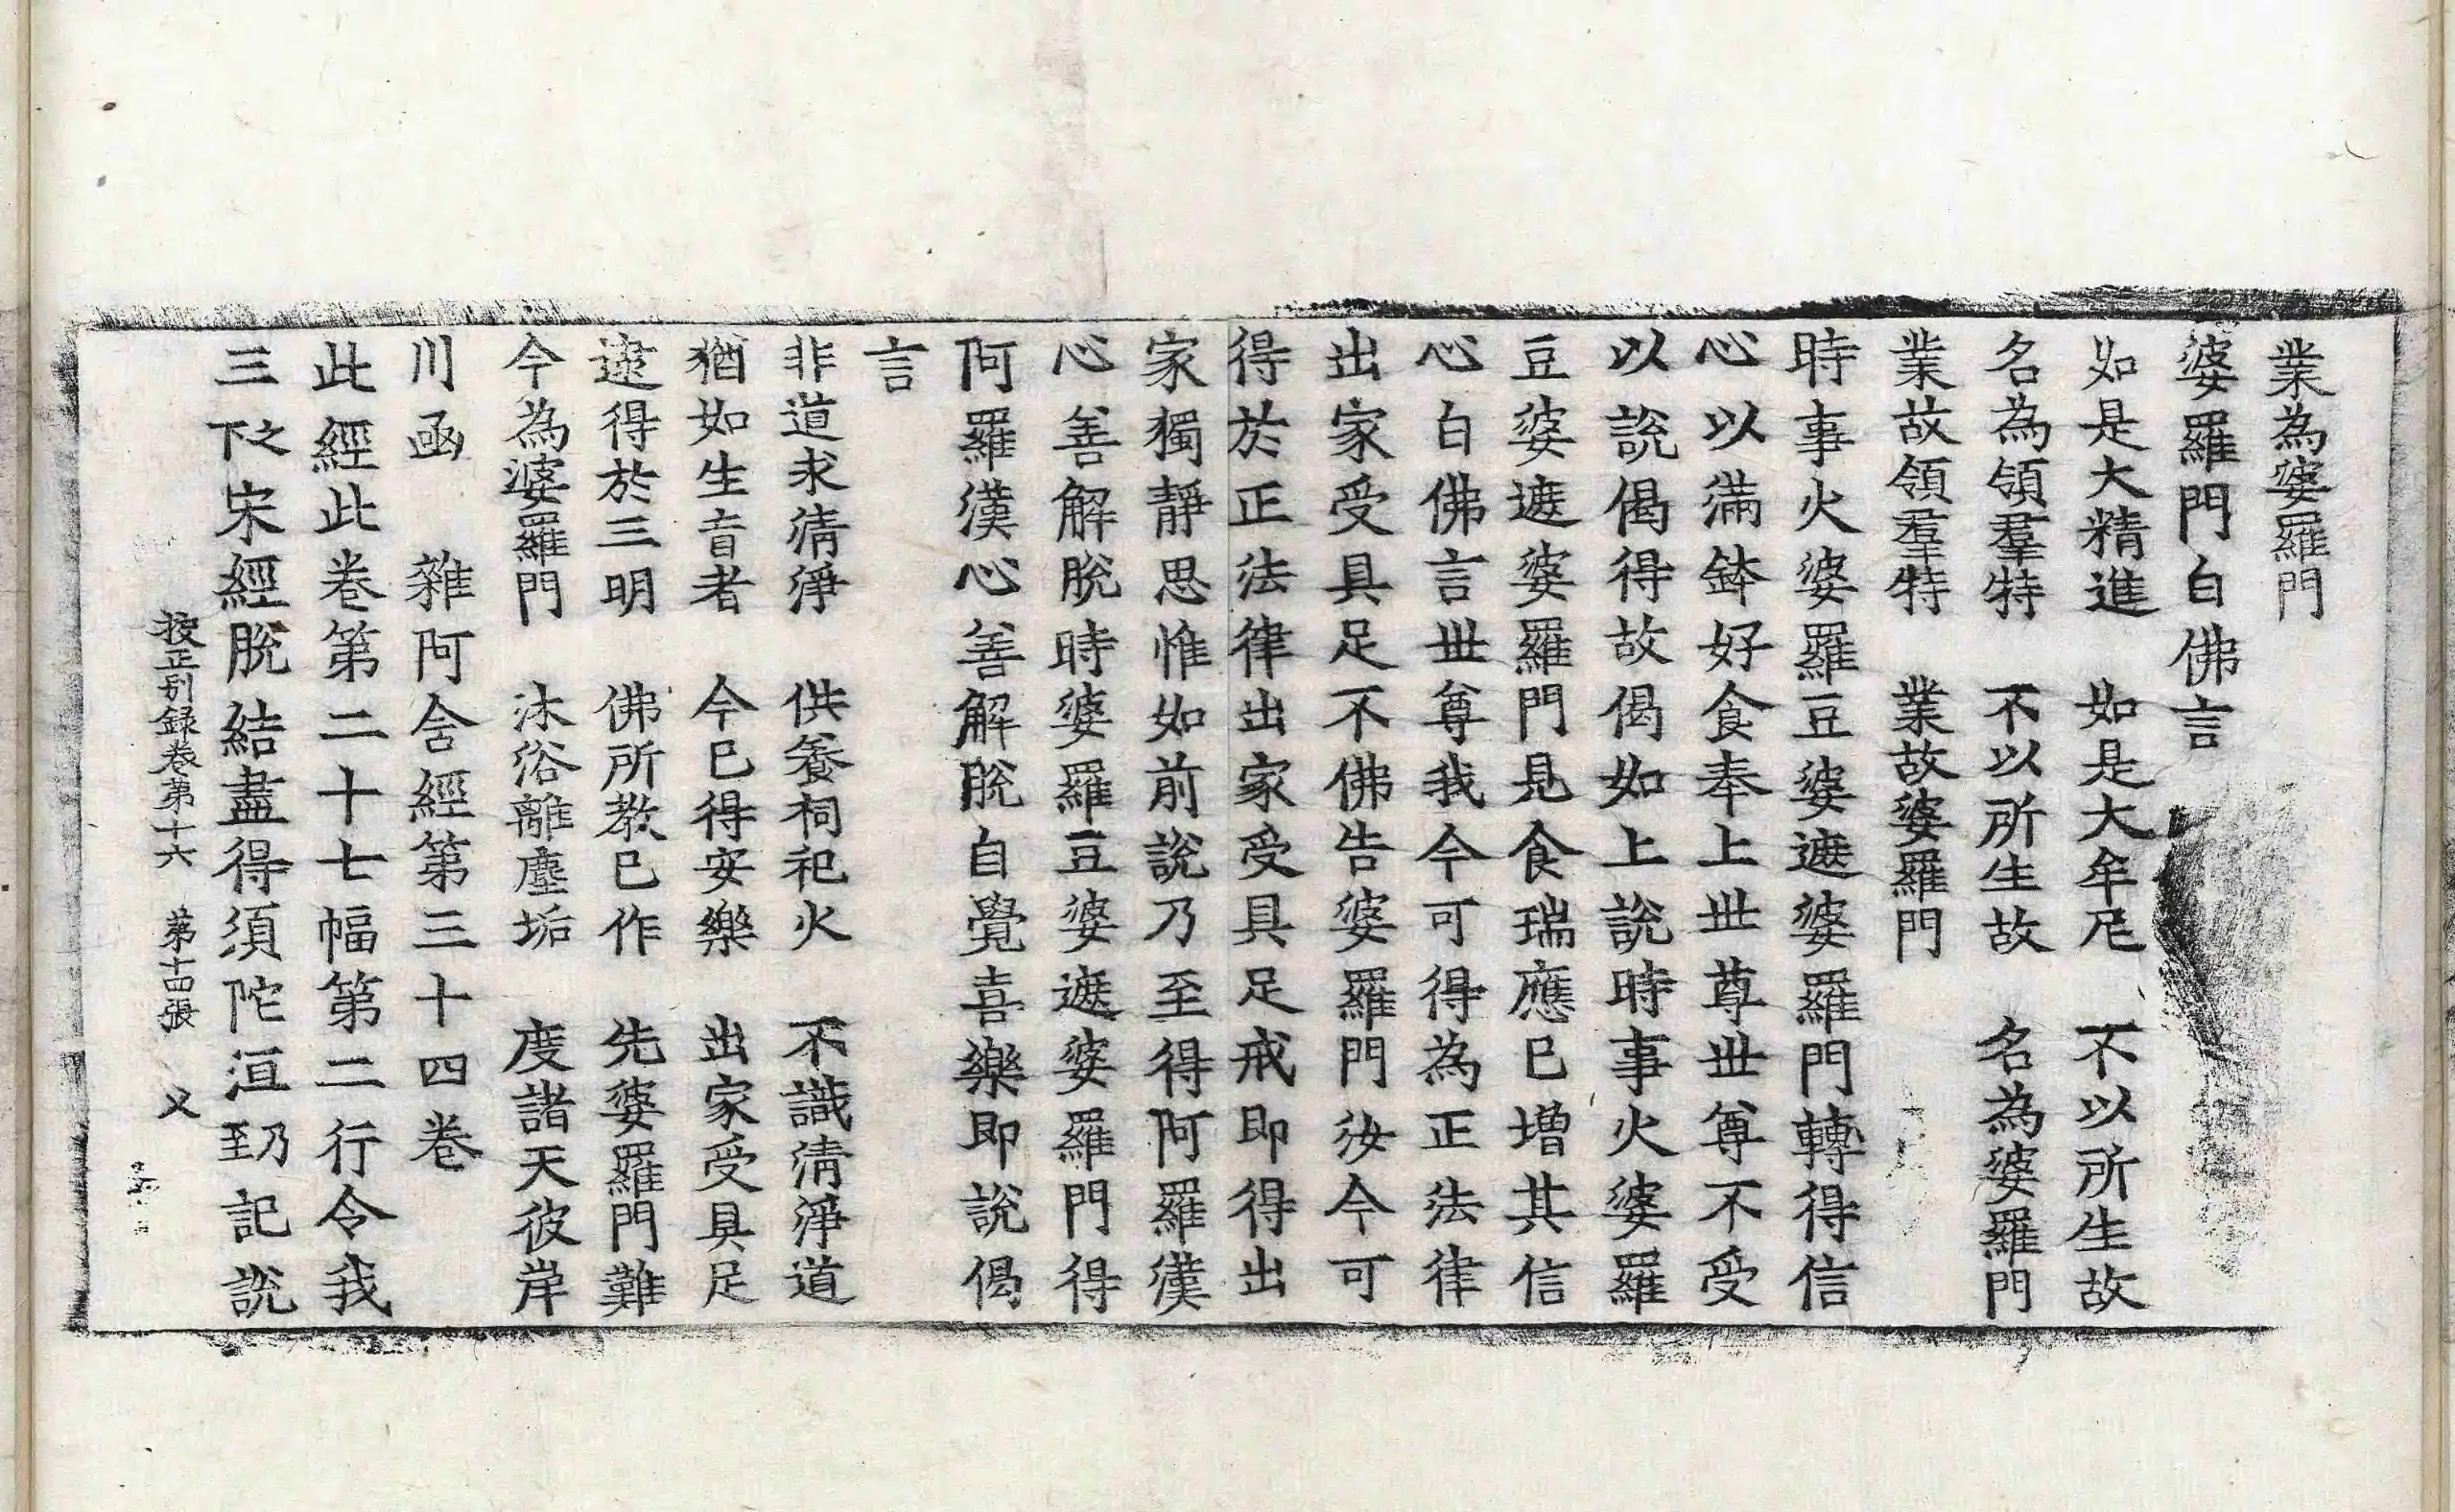 業為婆羅門
婆羅門白佛言
如是大精進　如是大牟尼　不以所生故
名為領羣特　不以所生故　名為婆羅門
業故領羣特　業故婆羅門
時事火婆羅豆婆遮婆羅門轉得信
心以滿鉢好食奉上世尊世尊不受
以說偈得故偈如上說時事火婆羅
豆婆遮婆羅門見食瑞應已增其信
心白佛言世尊我今可得為正法律
出家受具足不佛告婆羅門汝今可
得於正法律出家受具足戒即得出
家獨靜思惟如前說乃至得阿羅漢
心善解脫時婆羅豆婆遮婆羅門得
阿羅漢心善解脫自覺喜樂即說偈
言
非道求清淨　供養祠祀火　不識清淨道
猶如生盲者　今已得安樂　出家受具足
逮得於三明　佛所教已作　先婆羅門難
今為婆羅門　沐浴離塵垢　度諸天彼岸
川函　雜阿含經第三十四卷
此經此卷第二十七幅第二行令我
三下之宋經脫結盡得須陀洹乃至記說
挍正別録卷第十六　第十四張　义